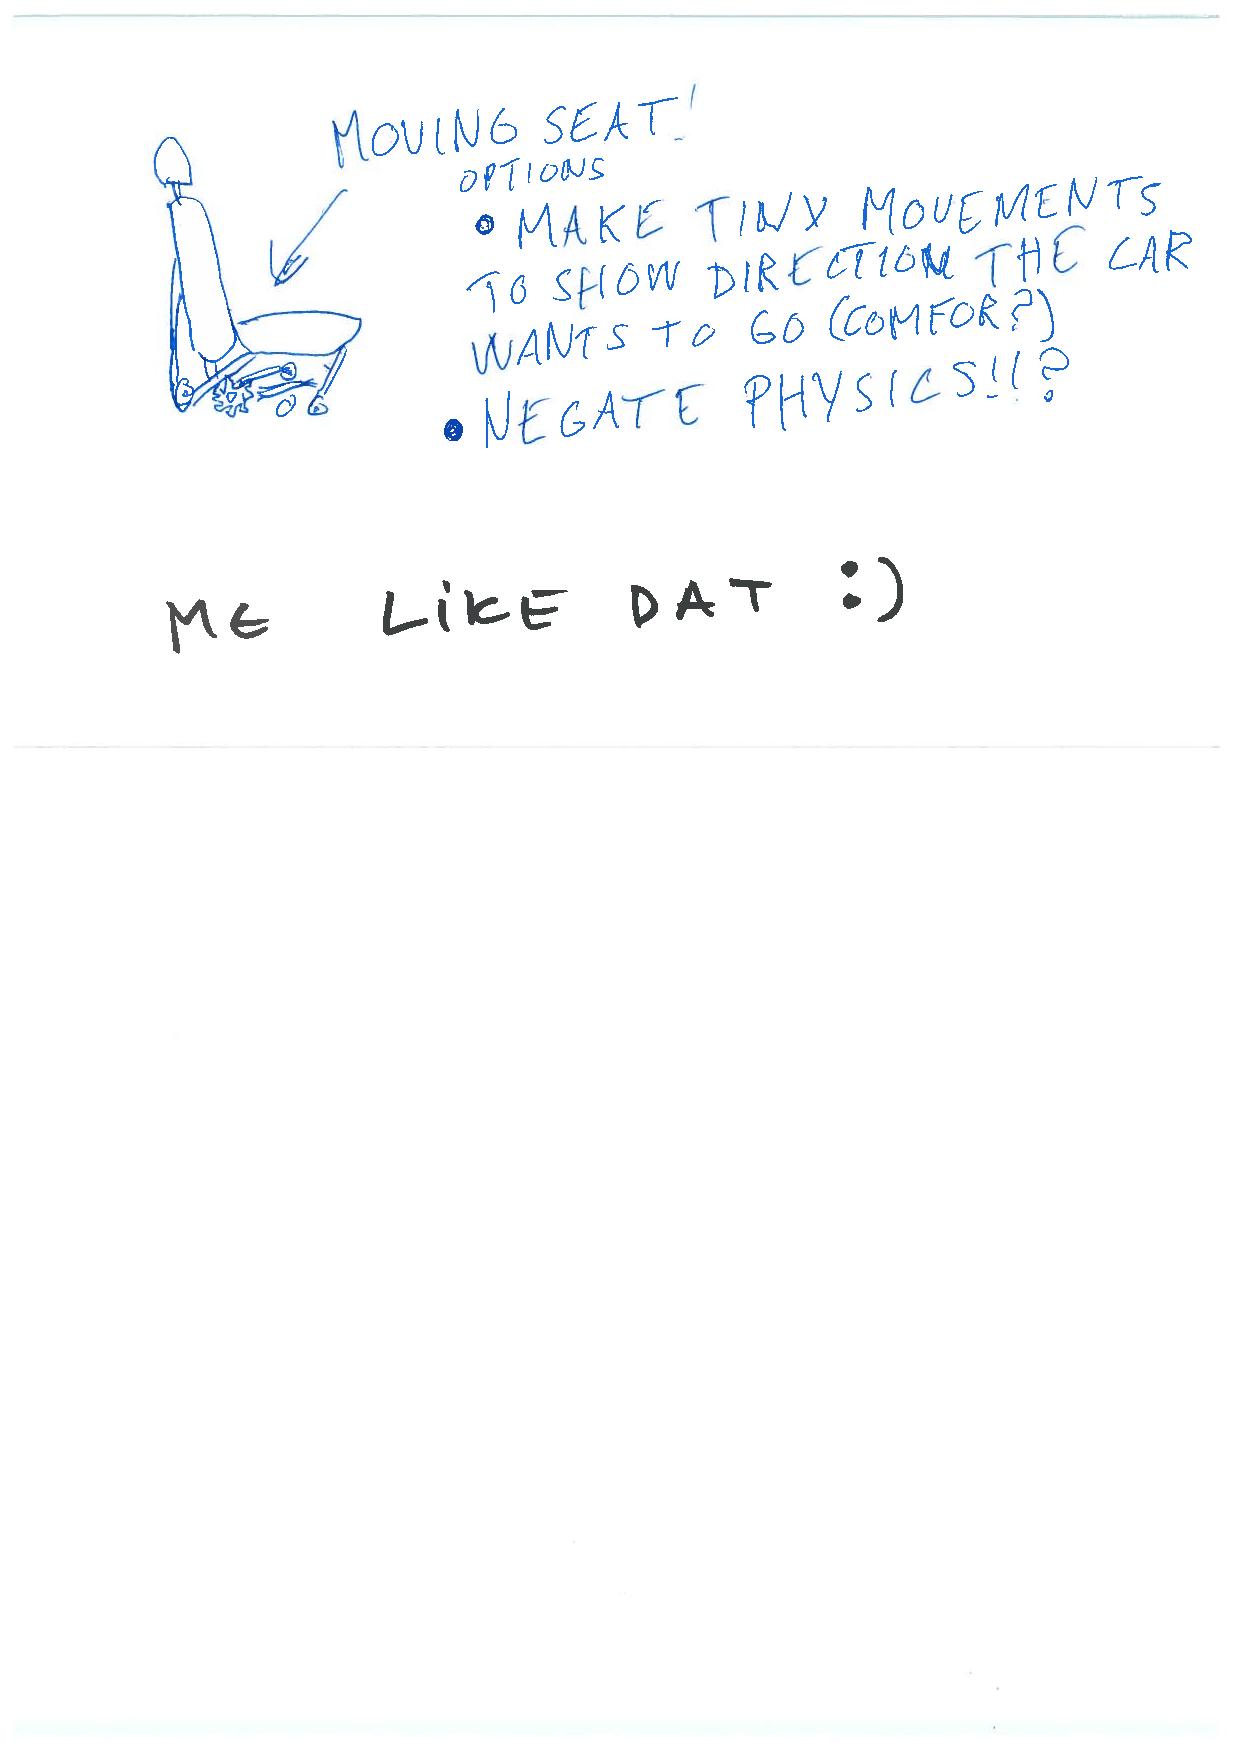 MOVING SEAT!
OPTIONS
• MAKE TINY MOVEMENTS
TO SHOW DIRECTION THE CAR
WANTS TO GO (COMFOR?)
• NEGATE PHYSICS!!?
ME LiKE DAT :)